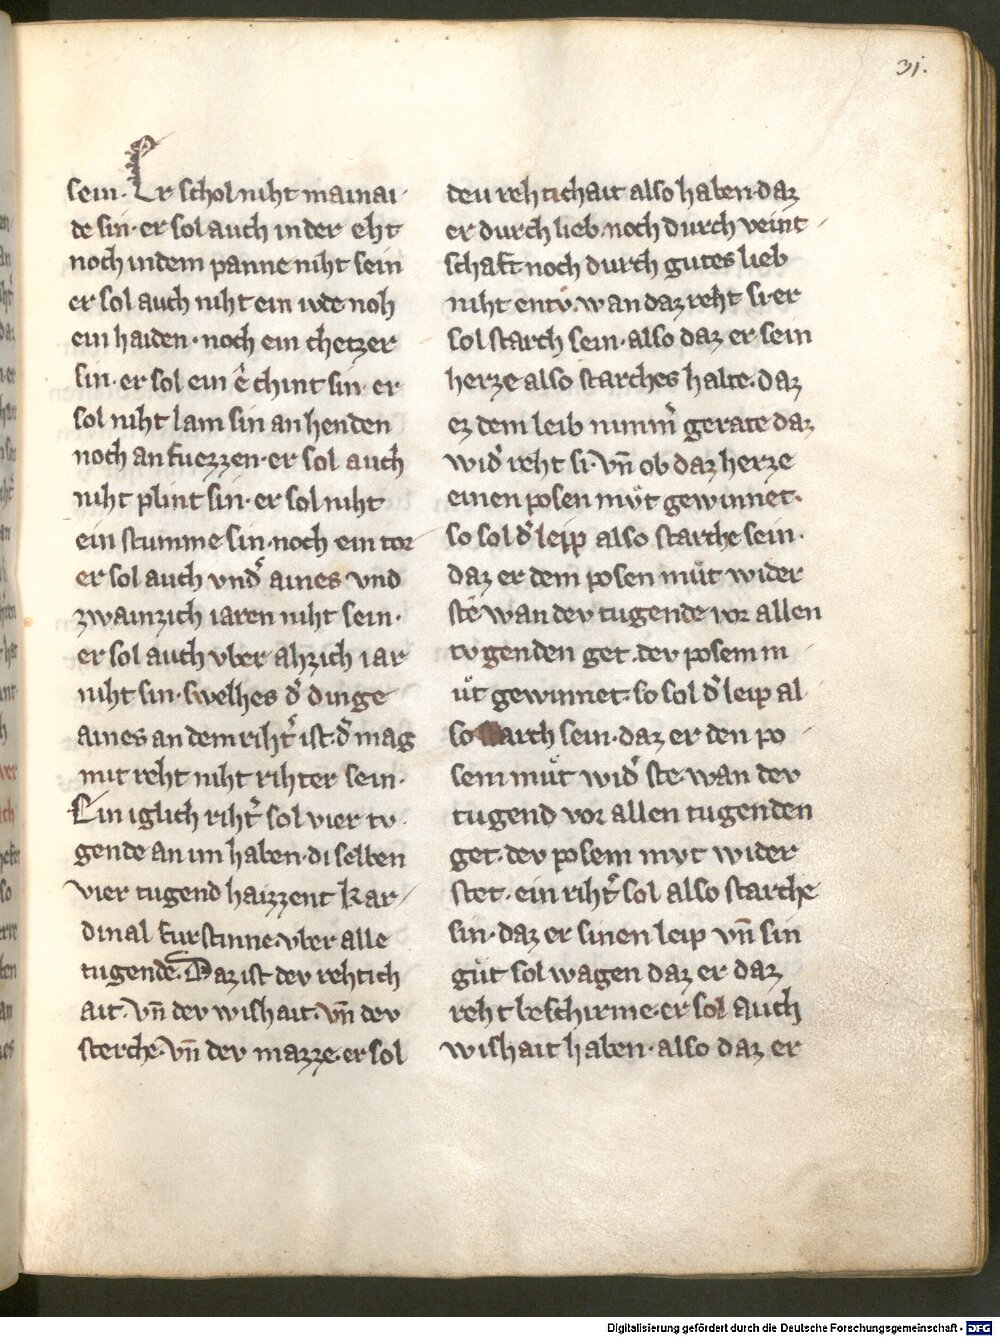 31.
sein. Er schol niht mainai
de sin. er sol auch in der eht
noch in dem panne niht sein
er sol auch niht ein iude noh
ein haiden. noch ein chetzer
sin. er sol ein ê chint sin. er
sol niht lam sin an henden
noch an fuezzen. er sol auch
niht plint sin. er sol niht
ein stumme sin. noch ein tor
er sol auch vnd᷎ aines vnd
zwainzich iaren niht sein.
er sol auch vber ahzich iar
niht sin. swelhes d᷎ dinge
aines an dem riht᷎ ist. d᷎ mag
mit reht niht rihter sein.
Ein iglich riht᷎ sol vier tv
gende an im haben. di selben
vier tugend haizzent kar
dinal furstinne. vber alle
tugende. Daz ist dev rehtich
ait. vn̄ dev wishait. vn̄ dev
sterche. vn̄ dev mazze. er sol
deu rehtichait also haben. daz
er durch lieb. noch durch veint
schaft noch durch gutes lieb
niht entv. wan daz reht si. er
sol starch sein. also daz er sein
herze also starches halte. daz
ez dem leib nimm᷎ gerate daz
wid᷎ reht si. vn̄ ob daz herze
einen posen mvͤt gewinnet.
so sol d᷎ leip also starche sein.
daz er dem posen muͤt wider
ste wan dev tugende vor allen
tvgenden get. dev posem m
uͤt gewinnet. so sol d᷎ leip al
so starch sein. daz er den po
sem muͤt wid᷎ ste. wan dev
tugend vor allen tugenden
get. dev posem mvt wider
stet. ein riht᷎ sol also starche
sin. daz er sinen leip vn̄ sin
guͤt sol wagen daz er daz
reht beschirme. er sol auch
wishait haben. also daz er
Digitalisierung gefördert durch die Deutsche Forschungsgemeinschaft - DFG